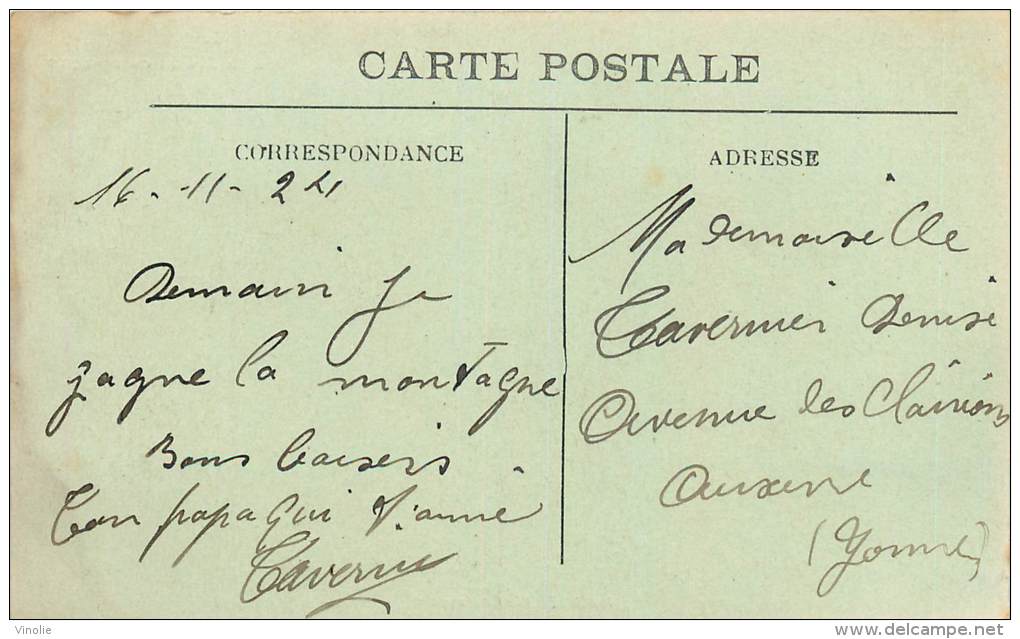 CARTE POSTALE
CORRESPONDANCE
16-11-24
Demain je
gagne la montagne
Bons baisers.
Ton papa qui t'aime
Tavernier
ADRESSE
Mademoiselle
Tavernier Denise
Avenue des Clairions
Auxerre
(Yonne)
Vinolie
delcampe.net